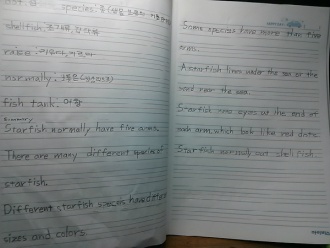 species: 종
shellfish: 조개류,
raise:
normally: 보통은
fish tank: 어항
Summary
Starfish normally have five arms.
There are many different species of
starfish.
Different starfish species have different
sizes and colors
Some species have more than five
arms.
A starfish lives under the sea or the
sand near the sea.
Starfish has eyes at the end of
each arm, which look like red dots.
Starfish normally eat shellfish.